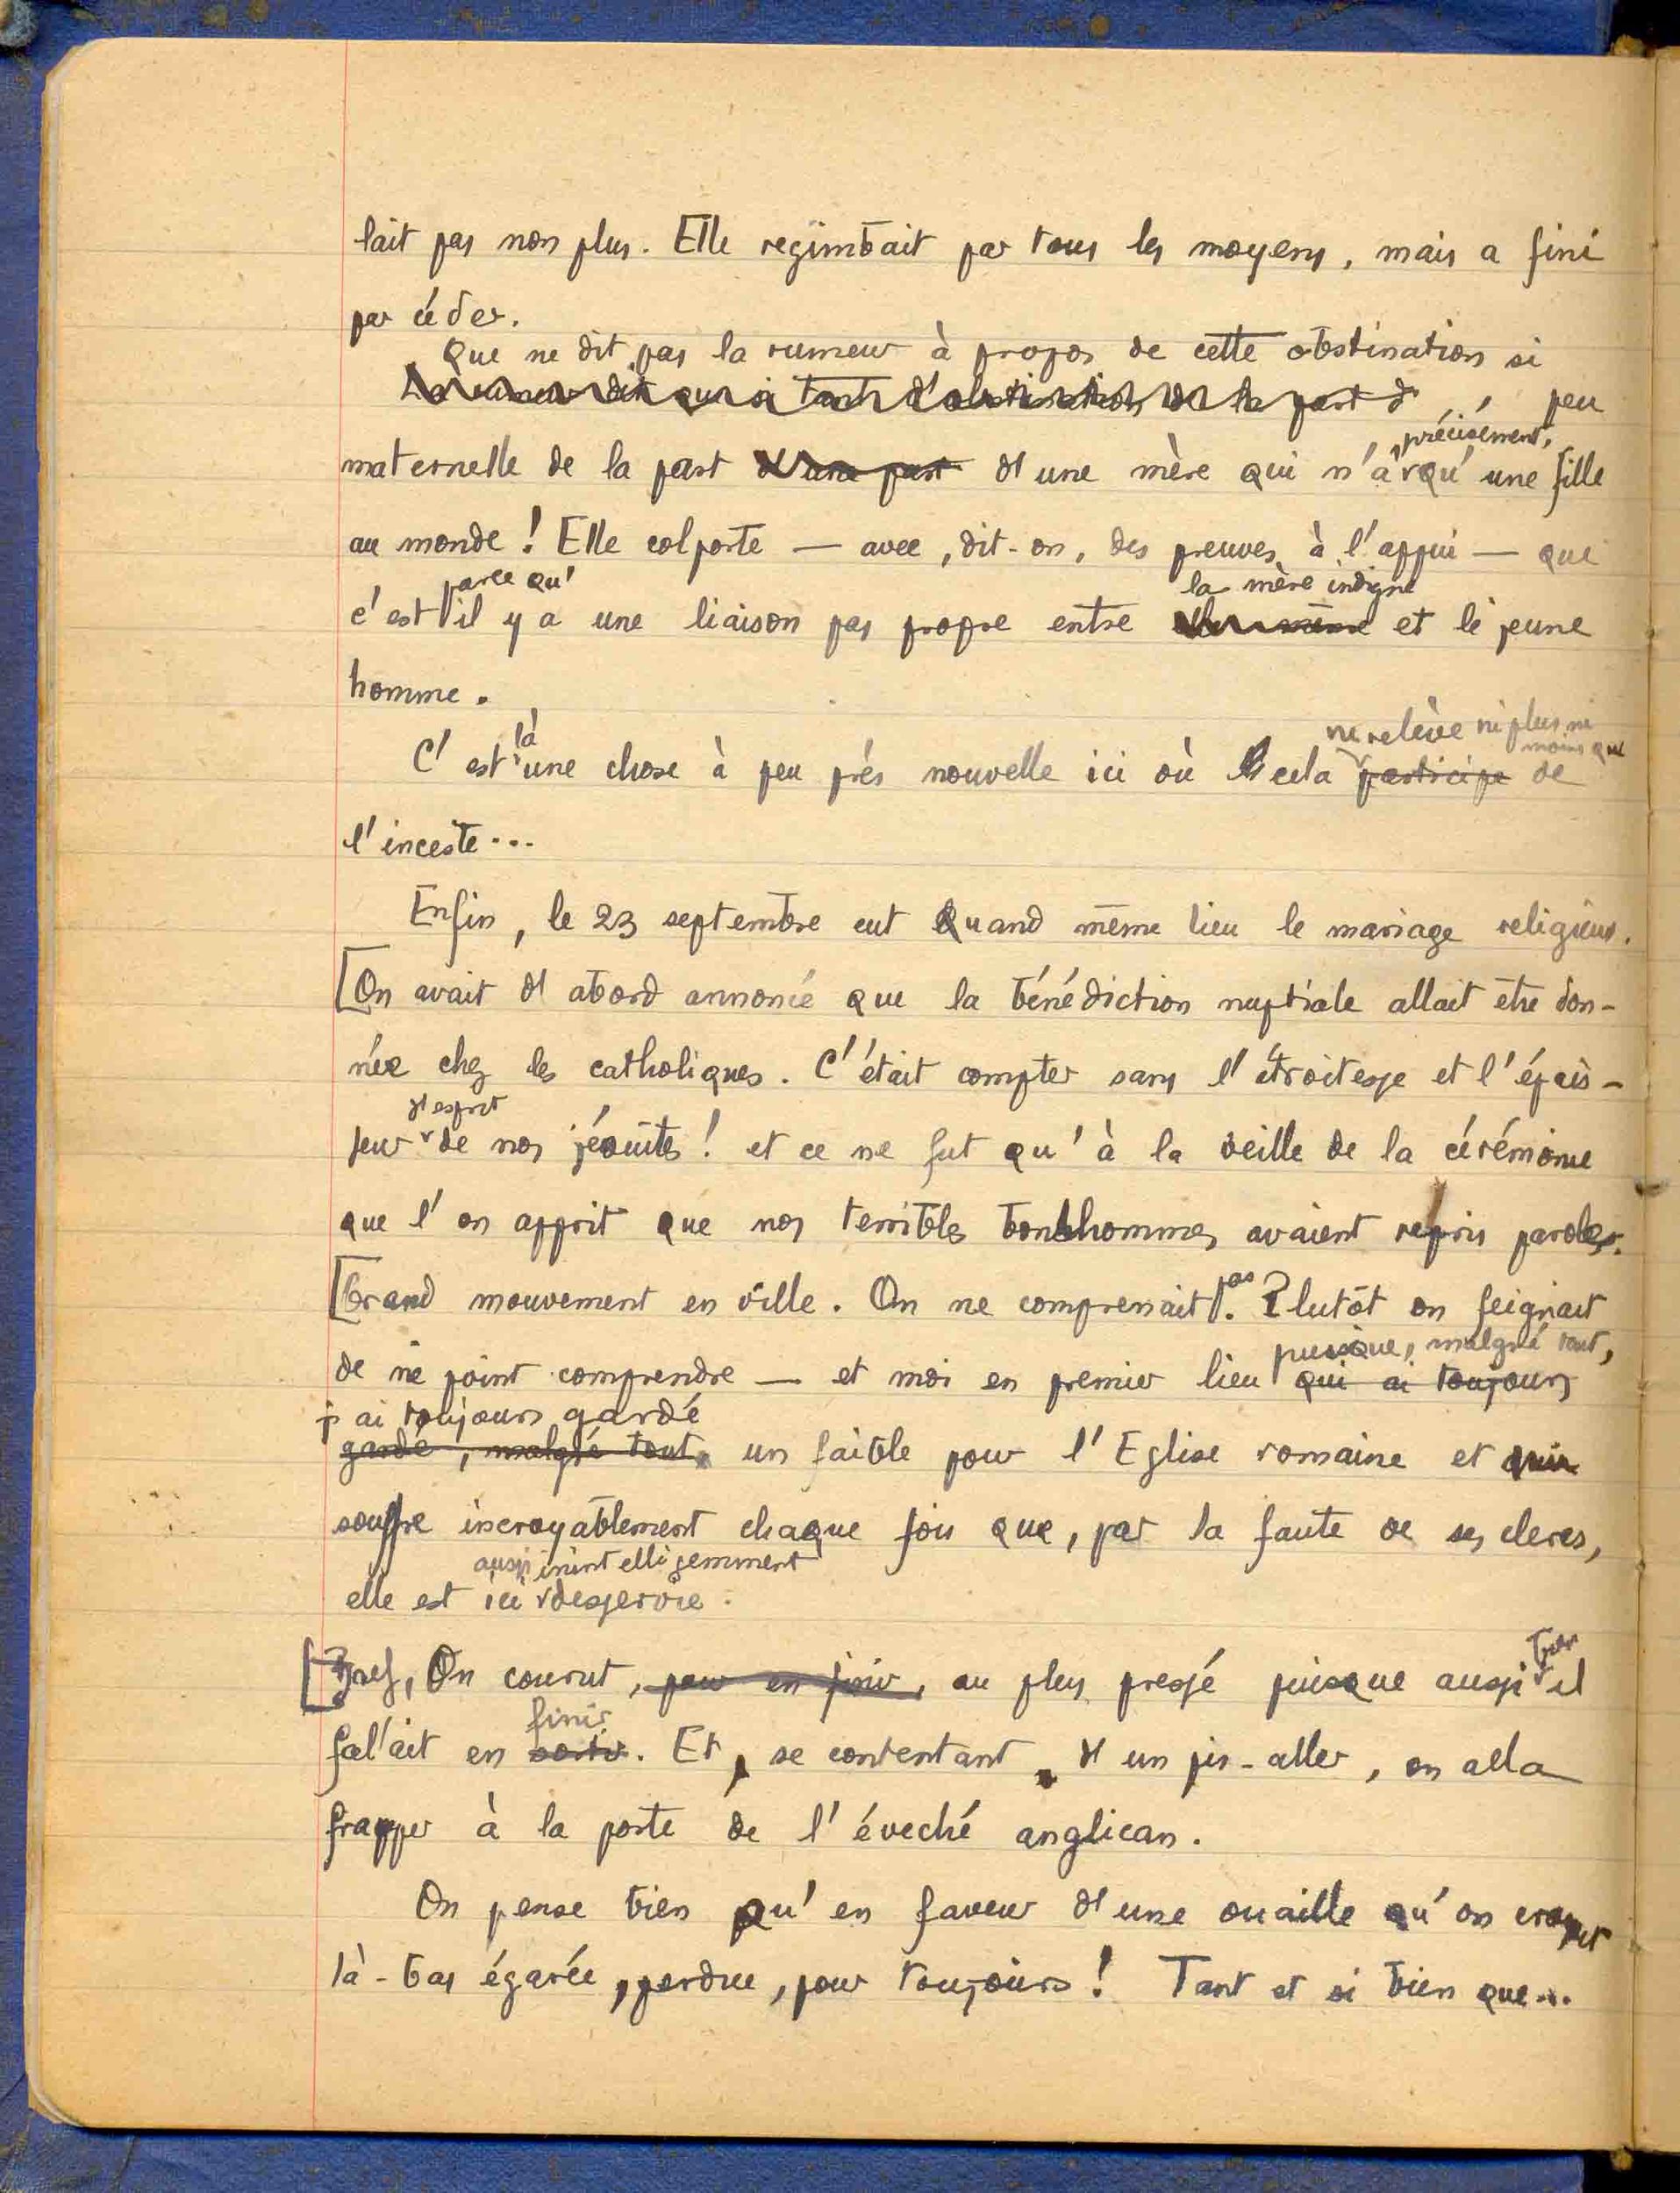 lait pas non plus. Elle regimbait par tous les moyens, mais a fini
par céder.
Que ne dit pas la rumeur à propos de cette obstination si
La rumeur dit que si tant d'obstination de la part d
peu
précisément,
maternelle de la part d'une part d'une mère qui n'a qu'une fille
au monde ! Elle colporte — avec, dit-on, des preuves à l'appui — que
parce qu' la mère indigne
c'est il y a une liaison pas propre entre et le jeune
homme.
là ne relève ni plus ni
moins que
C'est une chose à peu près nouvelle ici où cela participe de
l'inceste...
Enfin, le 23 septembre eut quand même lieu le mariage religieux.
[On avait d'abord annoncé que la bénédiction nuptiale allait être don-
née chez les catholiques. C'était compter sans l'étroitesse et l'épais-
d'esprit
seur de nos jésuites ! et ce ne fut qu'à la veille de la cérémonie
que l'on apprit que nos terribles bonshommes avaient repris parole.
[Grand mouvement en ville. On ne comprenait pas. Plutôt on feignait
puisque, malgré tout,
de ne point comprendre — et moi en premier lieu qui ai toujours
j'ai toujours gardé
gardé, malgré tout, un faible pour l'Eglise romaine et qui
souffre incroyablement chaque fois que, par la faute de ses clercs,
aussi inintelligemment
elle est ici desservie.
bien
[Bref, On courut, pour en finir, au plus pressé puisque aussi il
finir
fallait en sortir. Et, se contentant d'un pis-aller, on alla
frapper à la porte de l'éveché anglican.
On pense bien qu'en faveur d'une ouaille qu'on croyait
là-bas égarée, perdue, pour toujours ! Tant et si bien que...